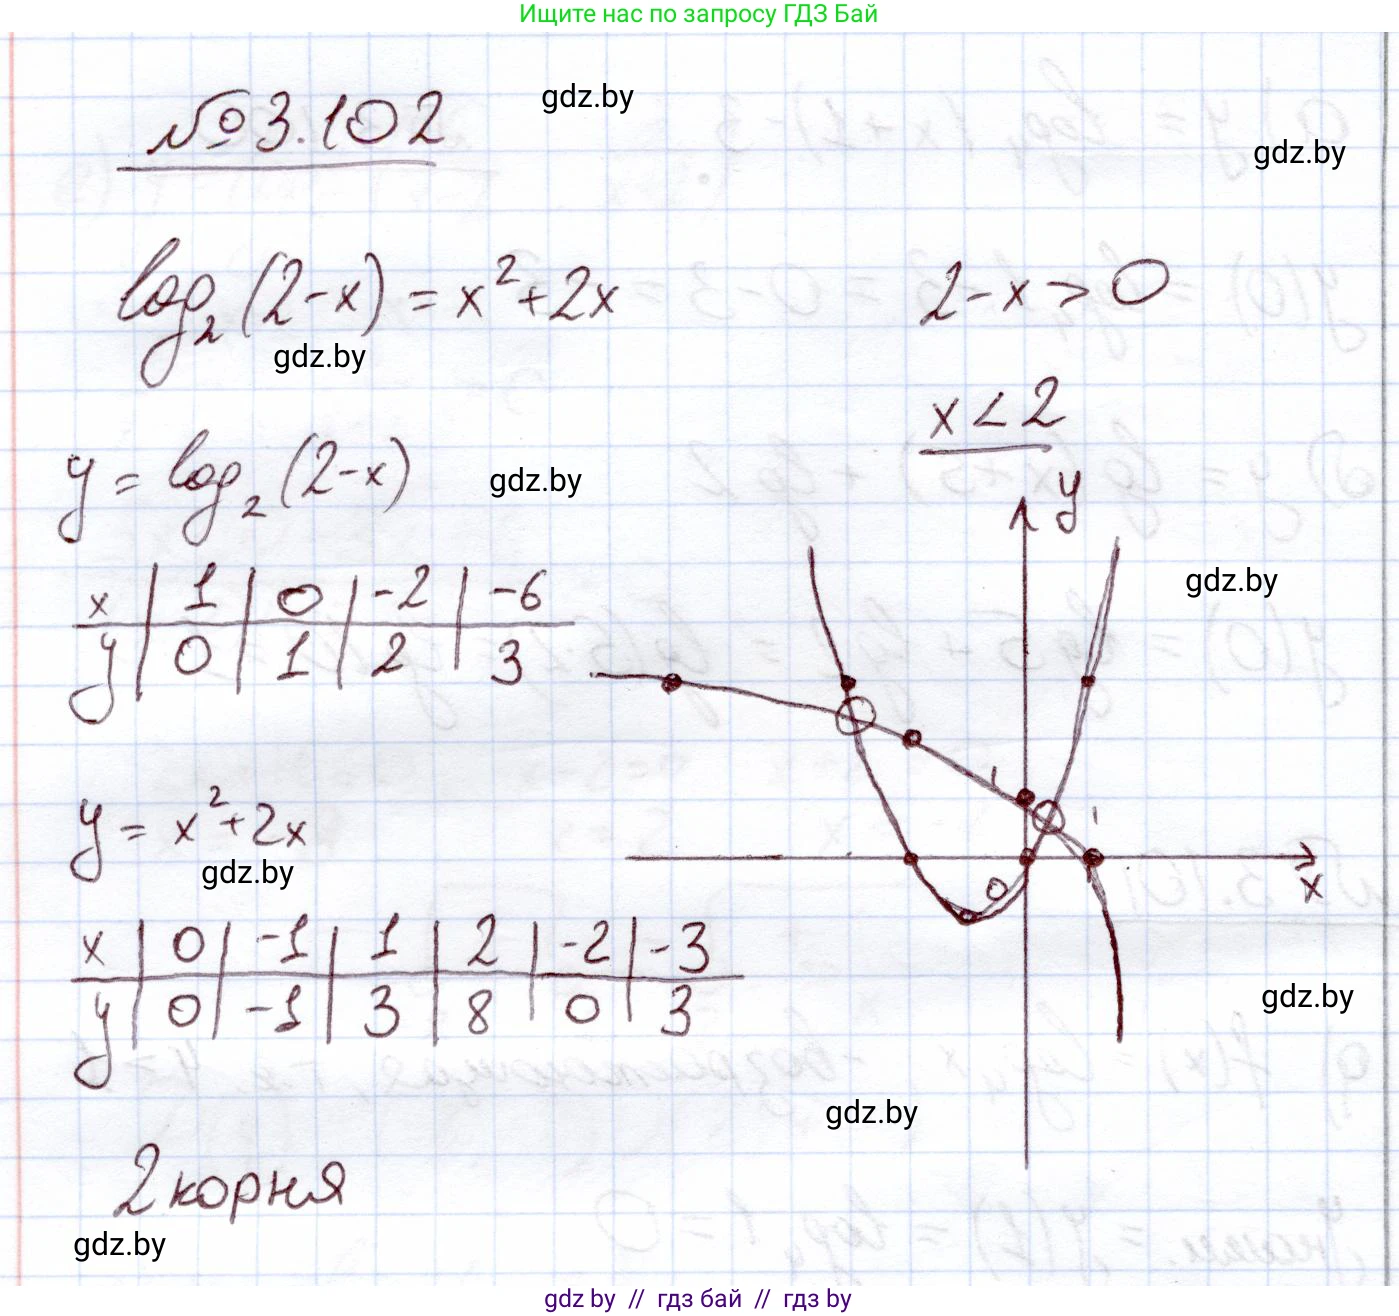 Ищите нас по запросу ГДЗ Бай
№3.102
gdz.by
gdz.by
log₂(2-x) = x²+2x
2-x > 0
gdz.by
x < 2
y = log₂(2-x)
gdz.by
y
gdz.by
x | 1 | 0 | -2 | -6
y | 0 | 1 | 2 | 3
1
1
y = x²+2x
gdz.by
0
x
x | 0 | -1 | 1 | 2 | -2 | -3
y | 0 | -1 | 3 | 8 | 0 | 3
gdz.by
gdz.by
2 корня
gdz.by
gdz by // гдз бай // гдз by